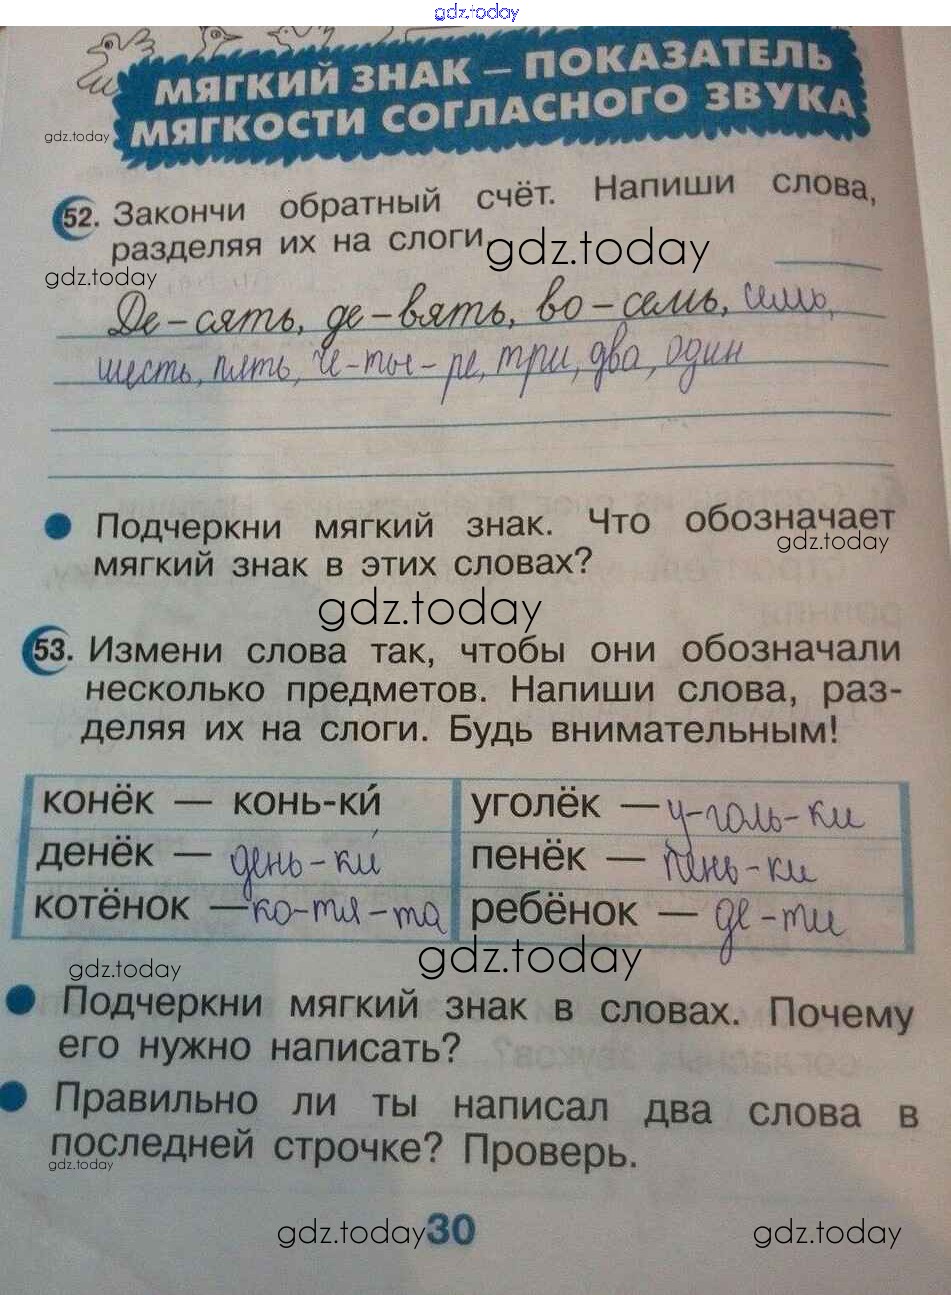 gdz.today
МЯГКИЙ ЗНАК – ПОКАЗАТЕЛЬ
МЯГКОСТИ СОГЛАСНОГО ЗВУКА
gdz.today
52. Закончи обратный счёт. Напиши слова,
разделяя их на слоги.
gdz.today
gdz.today
Де-сять, де-вять, во-семь, семь,
шесть, пять, че-ты-ре, три, два, один
Подчеркни мягкий знак. Что обозначает
gdz.today
мягкий знак в этих словах?
gdz.today
53. Измени слова так, чтобы они обозначали
несколько предметов. Напиши слова, раз-
деляя их на слоги. Будь внимательным!
конёк — конь-ки́ уголёк — у-голь-ки
денёк — день-ки́ пенёк — пень-ки
котёнок — ко-тя-та ребёнок — де-ти
gdz.today
gdz.today
Подчеркни мягкий знак в словах. Почему
его нужно написать?
Правильно ли ты написал два слова в
последней строчке? Проверь.
gdz.today
gdz.today 30 gdz.today